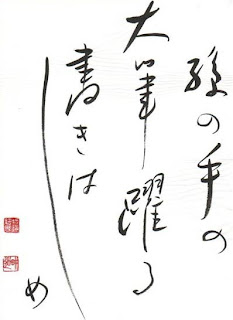 孫の手の
大筆躍る
書きは
しめ